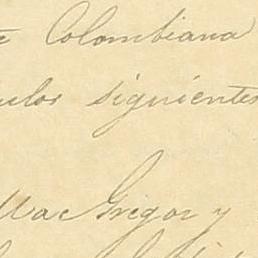 Colombiana
siguientes
MacGrigor y